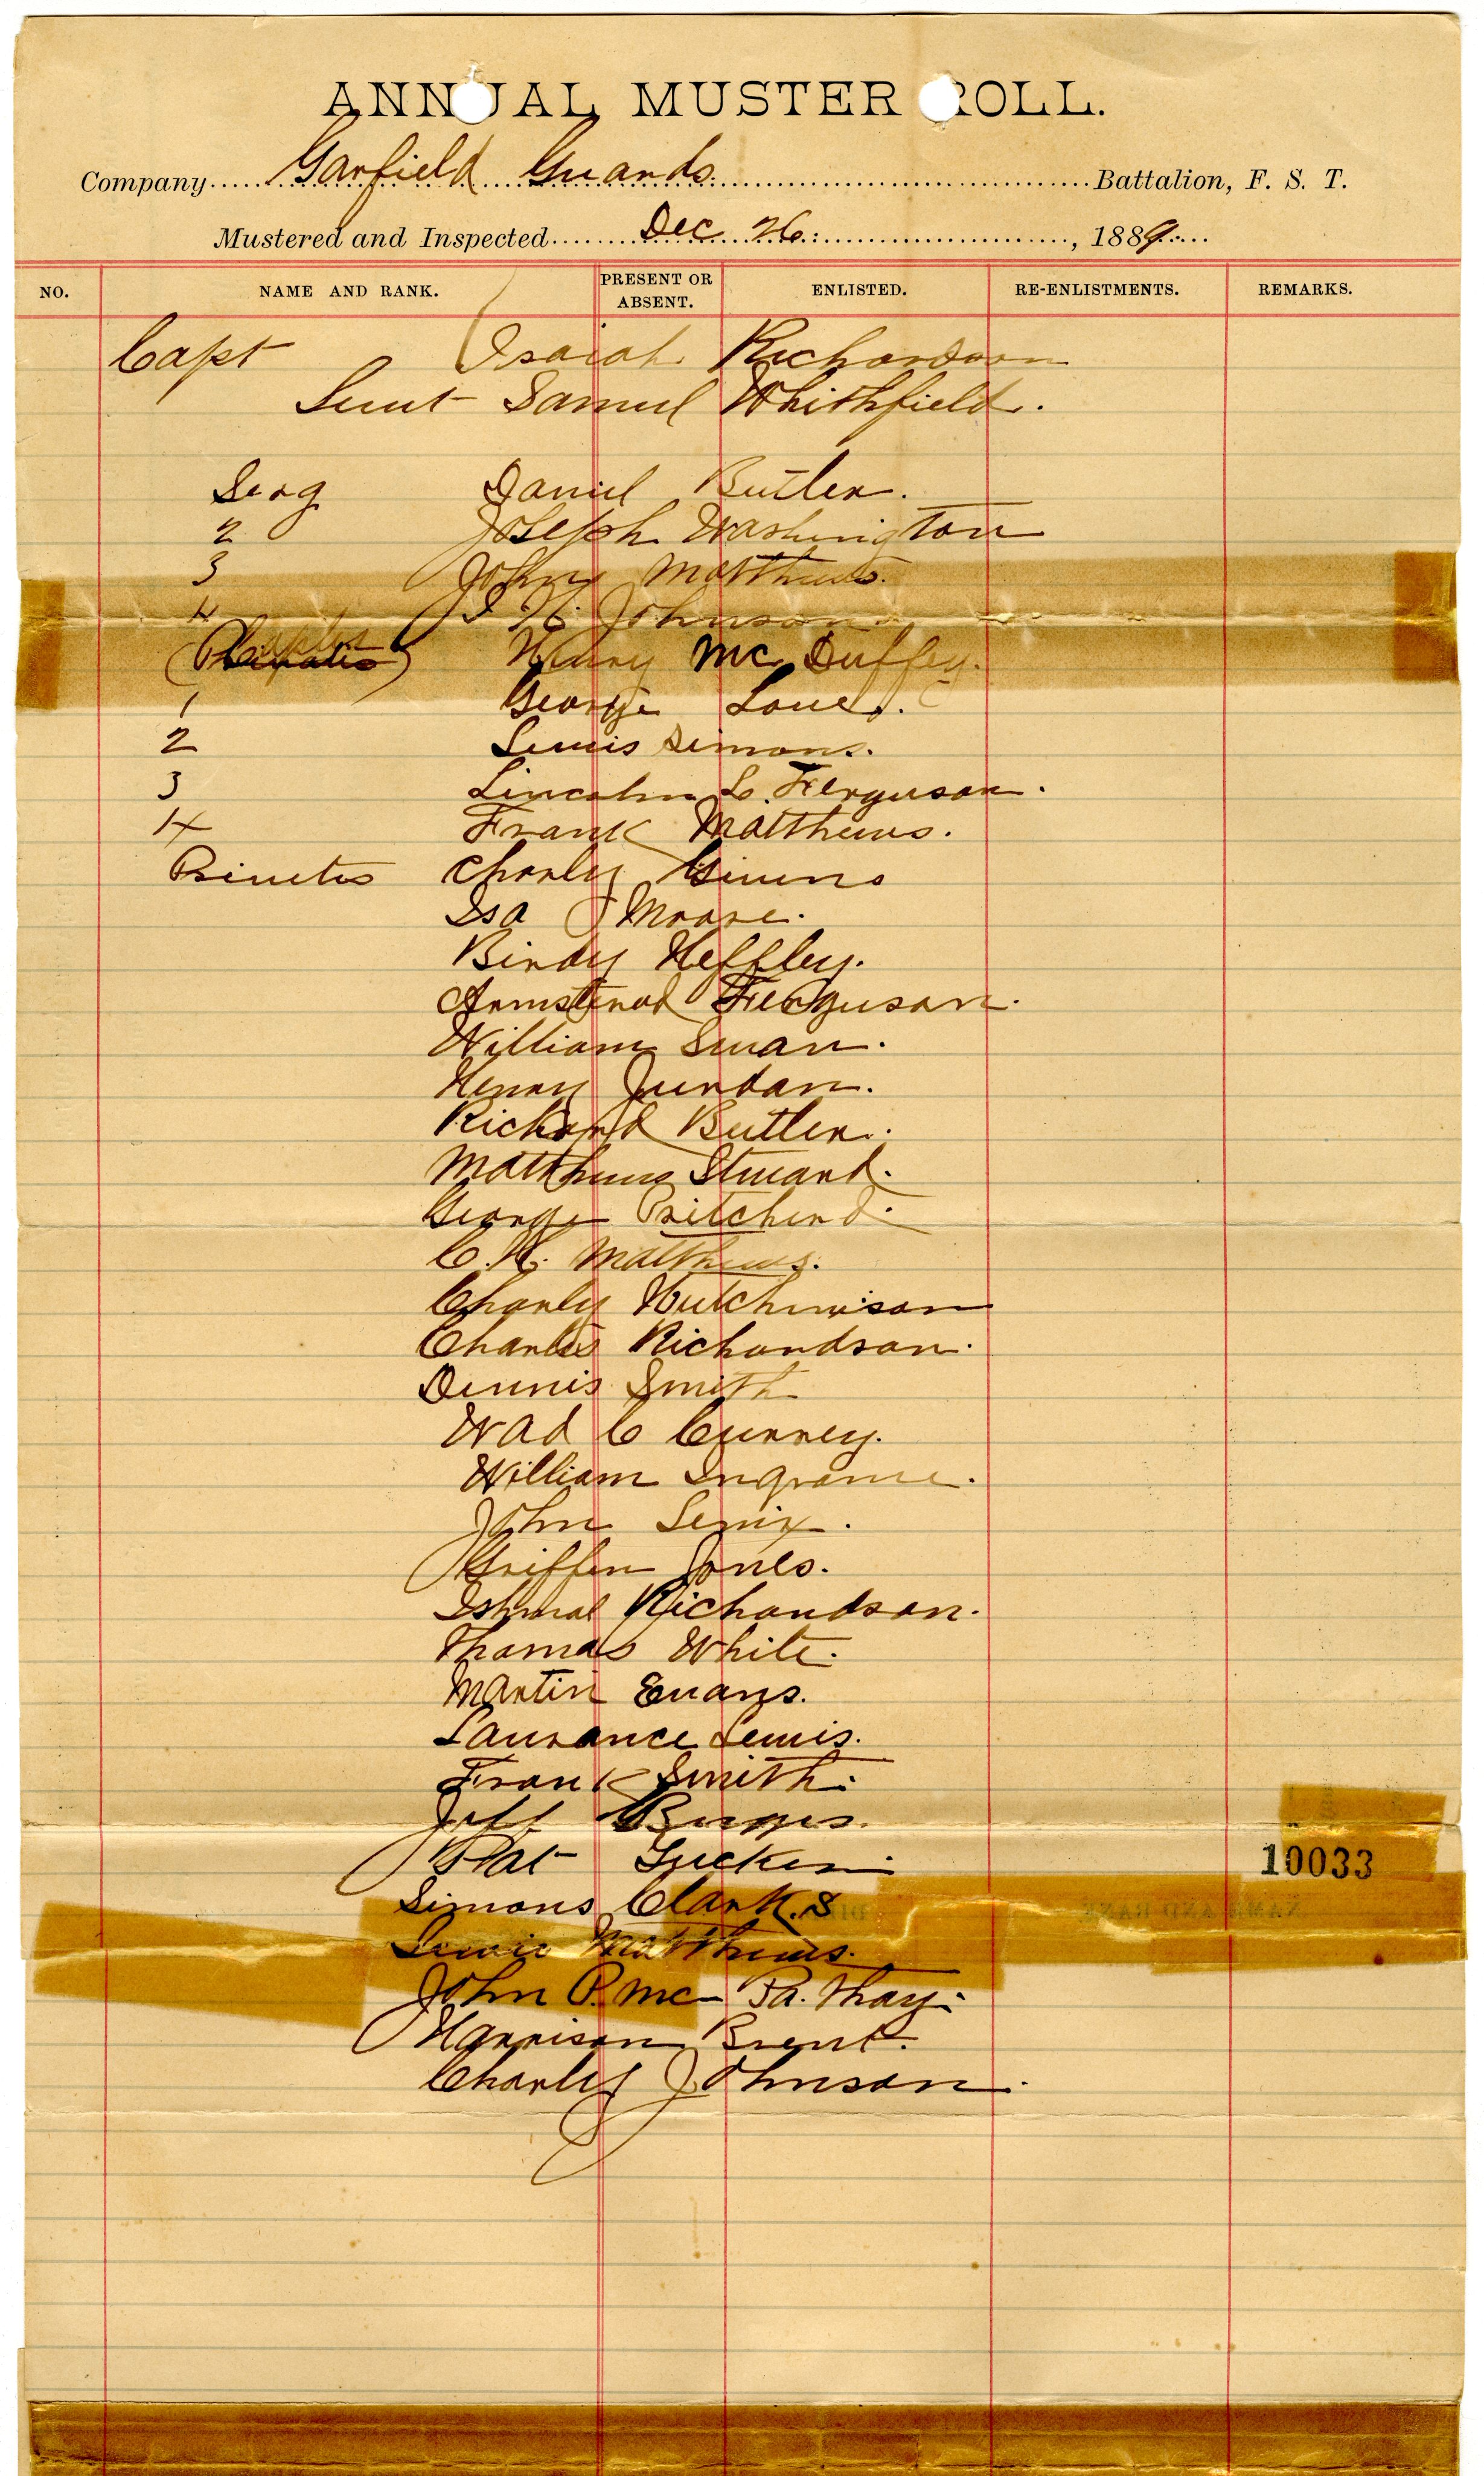 ANNUAL MUSTER ROLL.
Company Garfield Guards Battalion, F. S. T.
Mustered and Inspected Dec 26 , 1889
NO. NAME AND RANK. PRESENT OR ABSENT. ENLISTED. RE-ENLISTMENTS. REMARKS.
Capt Isaiah Richardson
Leiut Samuel Whithfield.
Serg Daniel Butler.
2 Joseph Washington
3 Johny Matthews.
4 J H. Johnson
Henry Mc Duffey.
1 George Love.
2 Lewis Simons.
3 Lincolnn L. Ferguson.
4 Frank Matthews.
Privetes Charley Givens
Isa J Moore.
Birdy Heffley.
Armsterod Ferguson.
William Swan.
Henry Jurdan.
Richard Butler.
Matthews Steward.
George Pritcherd.
C. H. Matthews.
Charley Hutchinson
Charles Richardson.
Dennis Smith
Wad C Currey.
William Ingrame.
John Lenix.
Griffen Jones.
Ishmal Richardson.
Thomas White.
Martin Evans.
Laurance Lewis.
Frank Smith.
Jeff
Pat Tucker
10033
Simons Clark. S
Lewie Matthews.
John P. Mc Ra. Thay.
Harrison Brent.
Charley Johnson.